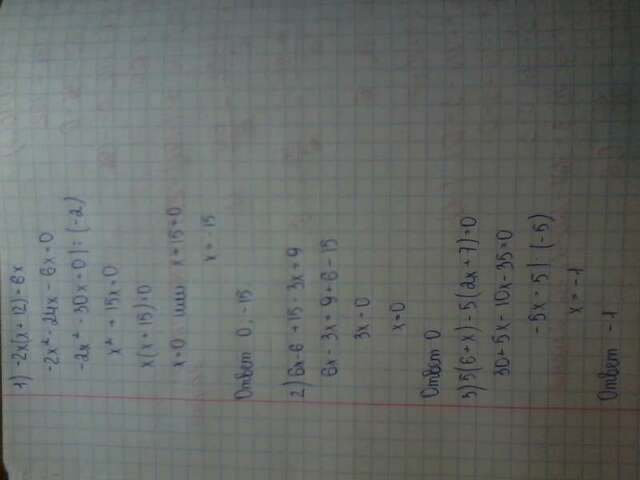 1) -2x(x + 12) = 6x
-2x² - 24x - 6x = 0
-2x² - 30x = 0 | : (-2)
x² + 15x = 0
x(x + 15) = 0
x = 0 или x + 15 = 0
x = -15
Ответ 0, -15
2) 6x - 6 + 15 - 3x = 9
6x - 3x = 9 + 6 - 15
3x = 0
x = 0
Ответ 0
3) 5(6 + x) - 5(2x + 7) = 0
30 + 5x - 10x - 35 = 0
-5x = 5 | (-5)
x = -1
Ответ -1